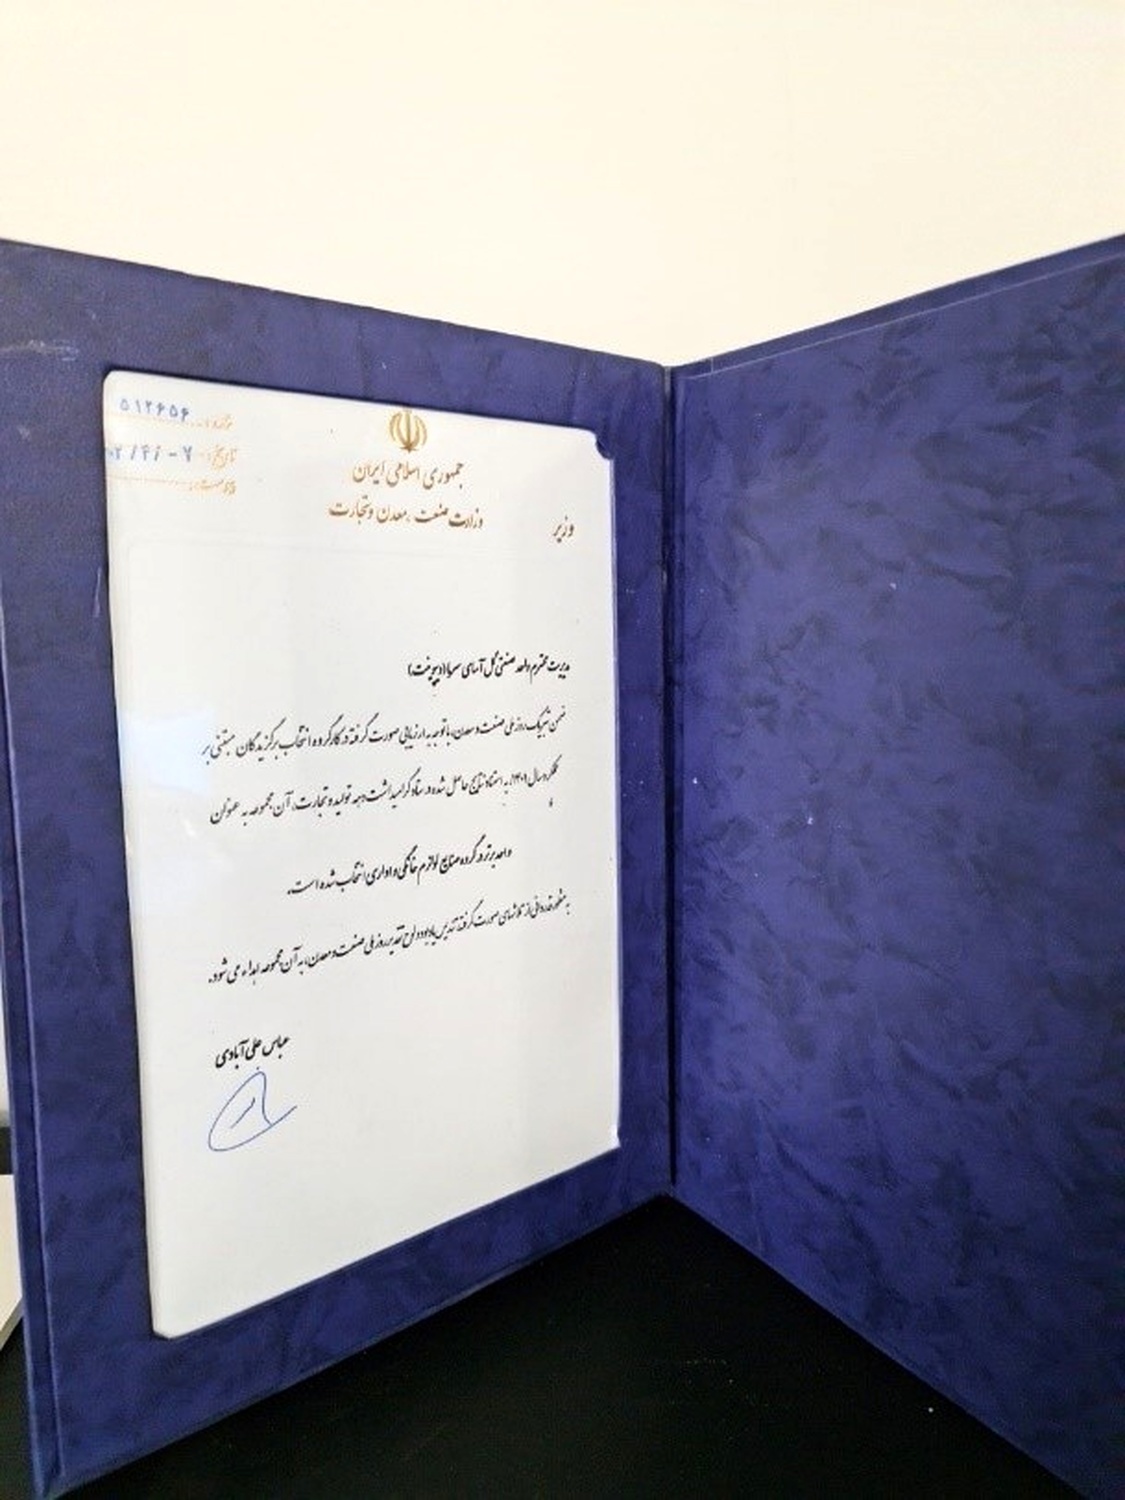 شماره: ۵۱۲۶۵۶
تاریخ:
پیوست:
جمهوری اسلامی ایران
وزارت صنعت، معدن و تجارت
وزیر
مدیریت محترم واحد صنعتی گل آسای سریا(دیپوینت)
ضمن تبریک روز ملی صنعت و معدن، با توجه به ارزیابی صورت گرفته در کارگروه انتخاب برگزیدگان مبتنی بر
عملکرد سال ۱۴۰۱، به استناد نتایج حاصل شده در ستاد گرامیداشت دهه تولید و تجارت، آن مجموعه به عنوان
واحد برتر در گروه صنایع لوازم خانگی و اداری انتخاب شده است.
به منظور قدردانی از تلاشهای صورت گرفته تندیس یادبود و لوح تقدیر روز ملی صنعت و معدن، به آن مجموعه اهداء می شود.
عباس علی آبادی